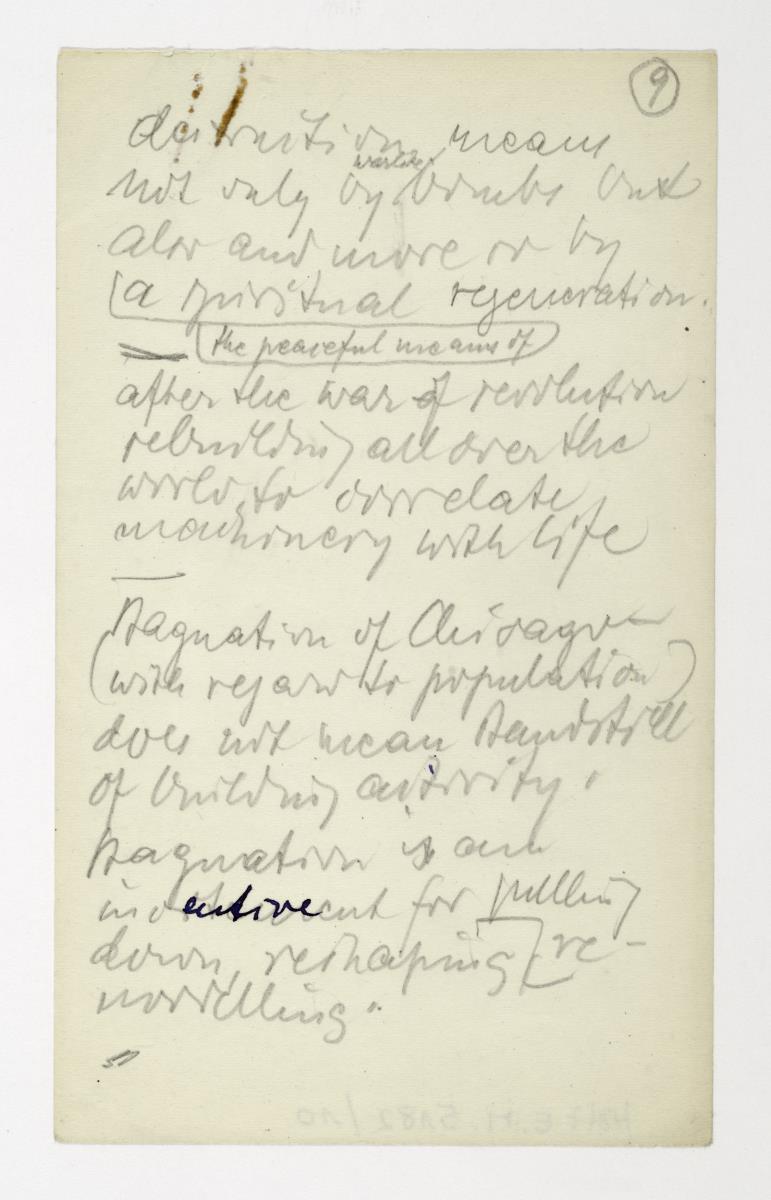 9
destruction means
not only by warlike bombs but
also and more so by
a spiritual regeneration.
the peaceful means of
after the war of revolution
rebuilding all over the
world, to correlate
machinery with life
Stagnation of Chicago
(with regard to population)
does not mean standstill
of building activity.
Stagnation is an
incentive for pulling
down, reshaping, re-
modelling.